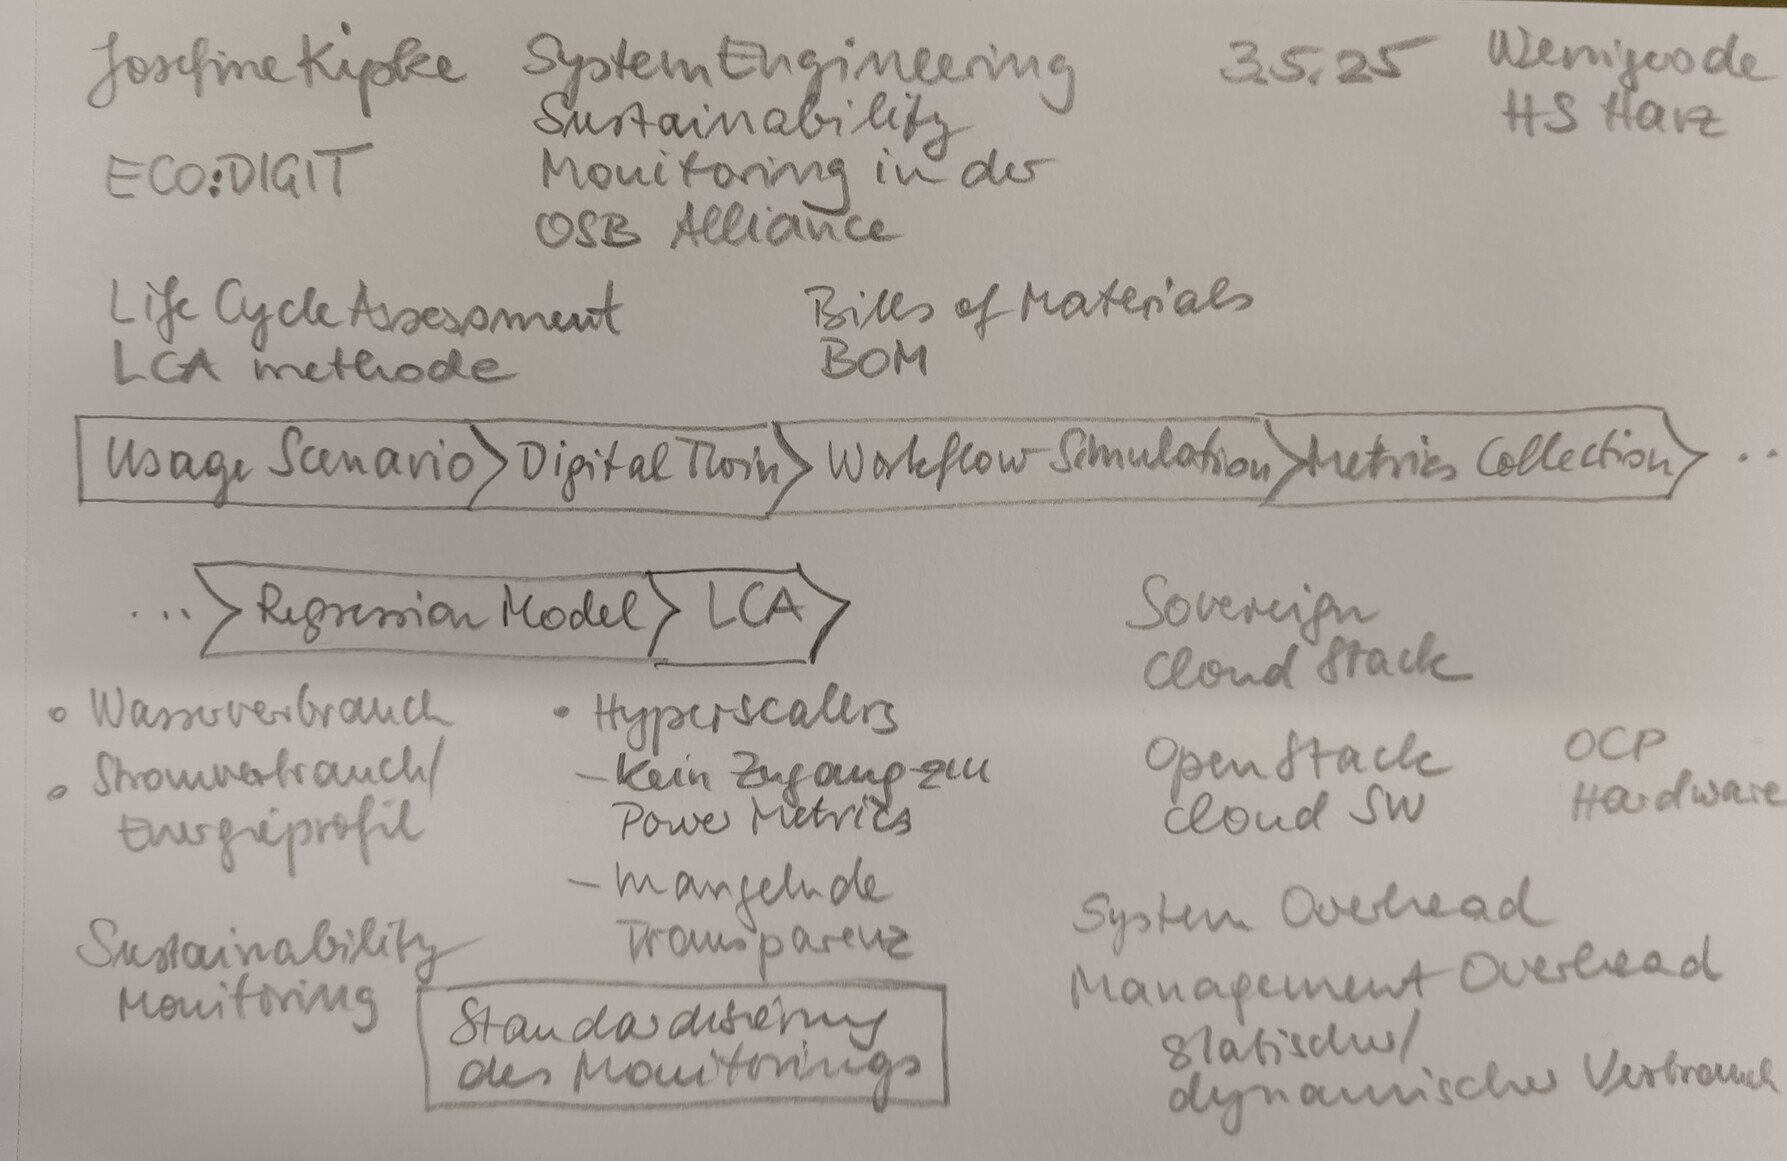 Josefine Kipke System Engineering 3.5.25 Wernigerode
Sustainability HS Harz
ECO:DIGIT Monitoring in der
OSB Alliance
Life Cycle Assessment Bills of Materials
LCA methode BOM
Usage Scenario Digital Twin Workflow-Simulation Metrics Collection ...
... Regression Model LCA
Sovereign
Cloud Stack
• Wasserverbrauch
• Stromverbrauch/
Energieprofil
• Hyperscalers
- Kein Zugang zu
Power Metrics
- mangelnde
Transparenz
OpenStack OCP
Cloud SW Hardware
Sustainability
Monitoring
Standardisierung
des Monitorings
System Overhead
Management Overhead
statischer/
dynamischer Verbrauch